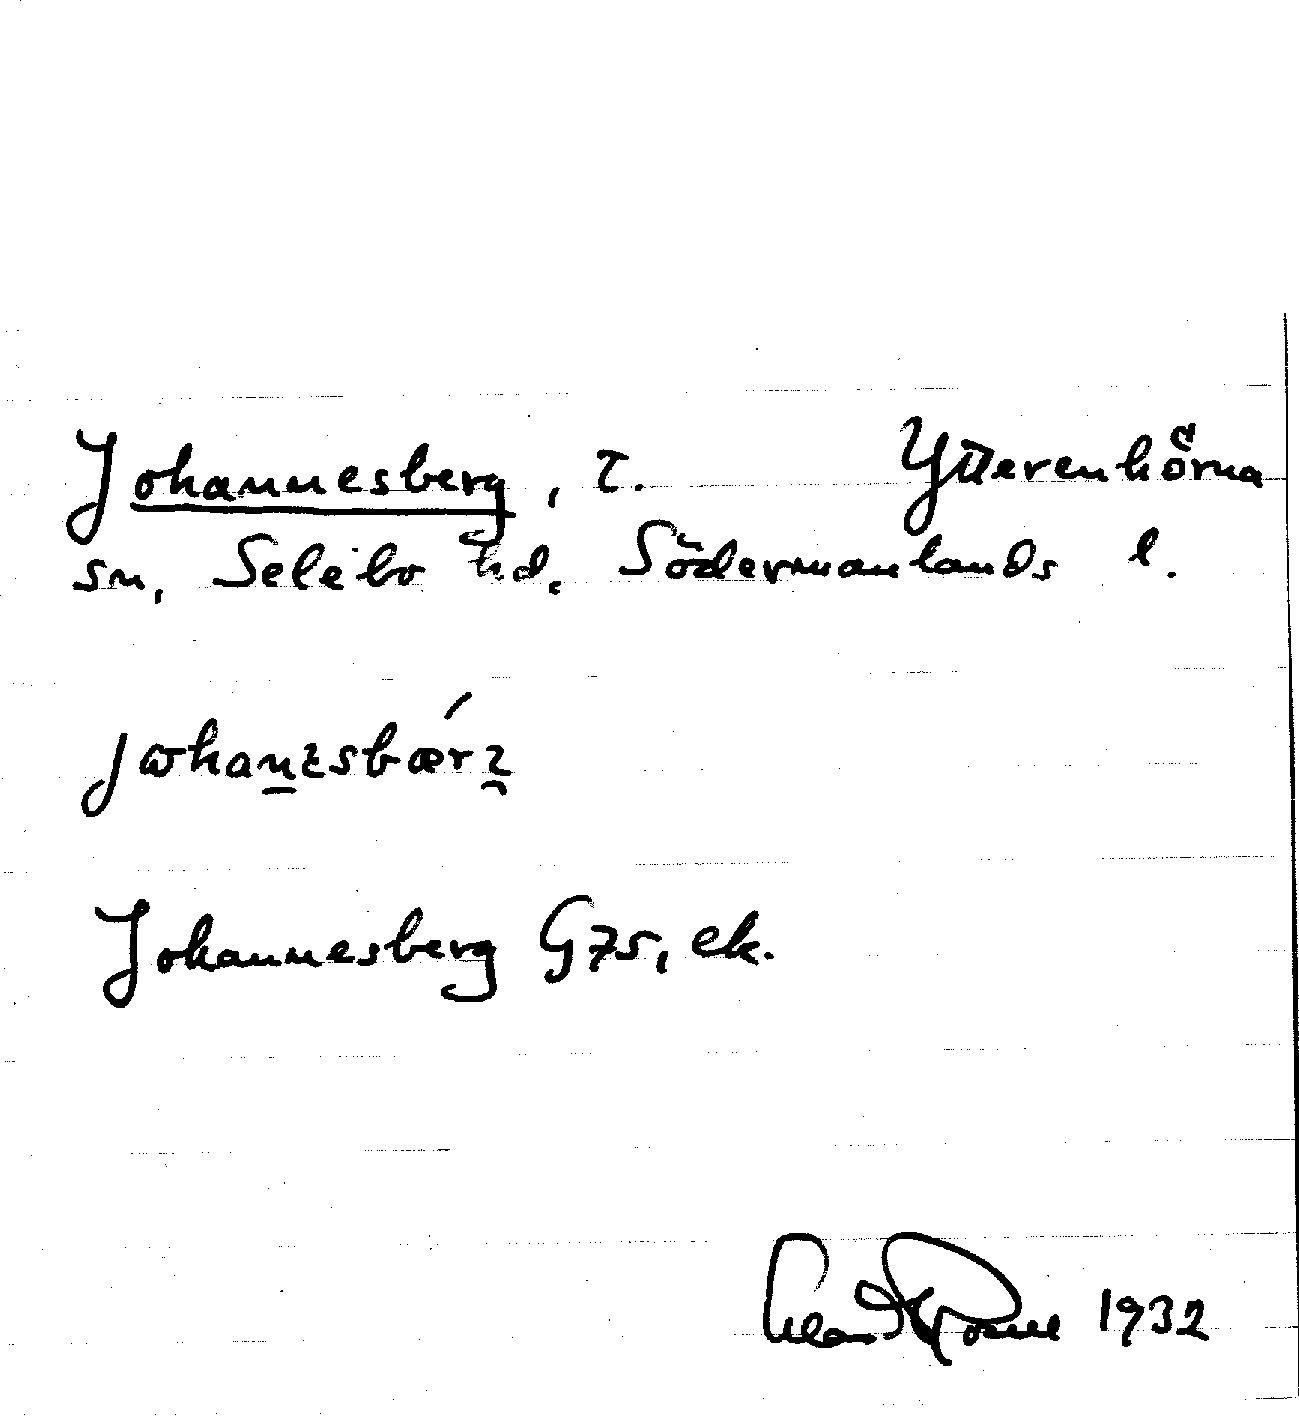 Johannesberg, t. Ytterenhörna
sn, Selebo hd, Södermanlands l.
Johannesberg G75, ek.
1932